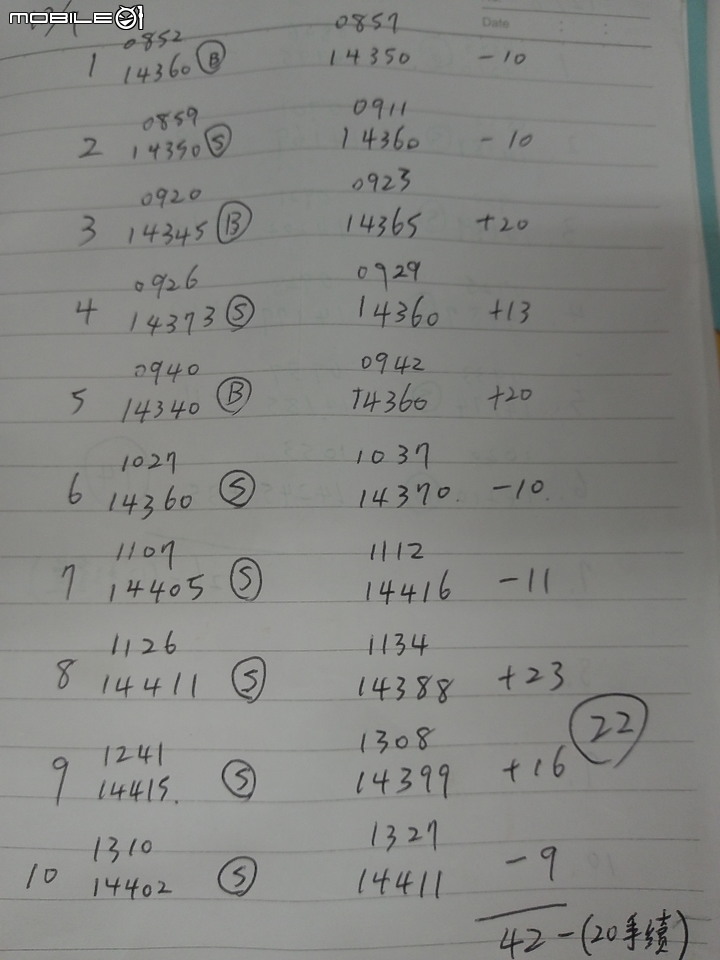 MOBILE01
Date
0852 0857
1 14360 B 14350 -10
0859 0911
2 14350 S 14360 -10
0920 0923
3 14345 B 14365 +20
0926 0929
4 14373 S 14360 +13
0940 0942
5 14340 B 14360 +20
1027 1037
6 14360 S 14370 -10
1107 1112
7 14405 S 14416 -11
1126 1134
8 14411 S 14388 +23
22
1241 1308
9 14415 S 14399 +16
1310 1327
10 14402 S 14411 -9
42-(20手續)